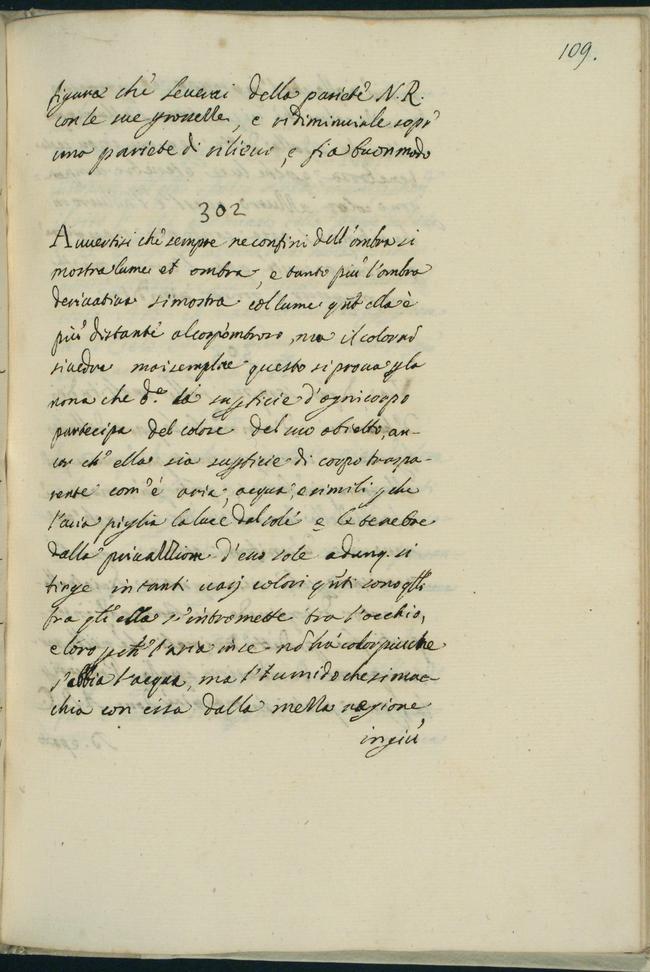 109.
figura che leverai della pariete N. R.
con le sue grosselle, e ridiminuirle sopr'
una pariete di rilievo, e fia buon modo
302
Avvertisi che sempre ne confini dell'ombra si
mostra lume et ombra, e tanto più l'ombra
derivativa si mostra col lume qnt ella è
più distante al corpo ombroso, ma il color nō
si vedra mai semplice questo si prova p la
nona che d.e la supficie d'ogni corpo
partecipa del colore del suo obietto, an-
cor ch' ella sia supficie di corpo traspa-
rente com'è aria, acqua, e simili p che
l'aria piglia la luce dal sole e le tenebre
dalla privattione d'esso sole adunq. si
tinge in tanti varj colori qnti sono qlli
fra qli ella s'intromette tra l'occhio,
e loro pch l'aria in se nō ha color più che
s'abbia l'acqua, ma l'humido che si mac-
chia con essa dalla mezza regione
in giù